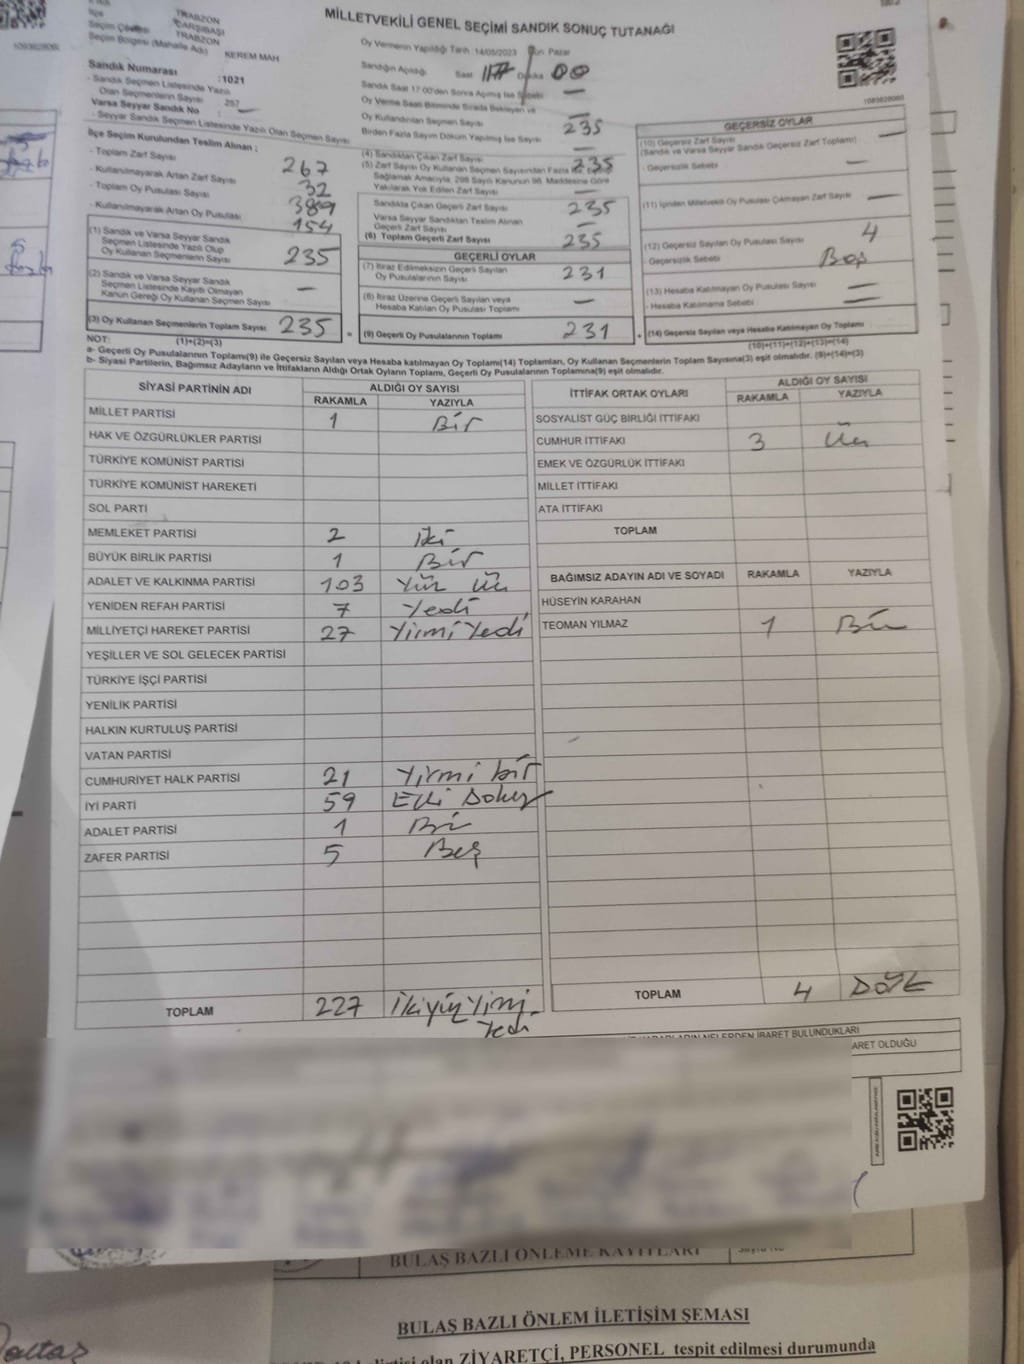 MİLLETVEKİLİ GENEL SEÇİMİ SANDIK SONUÇ TUTANAĞI
İlçe TRABZON
Seçim Çevresi ÇARŞIBAŞI
TRABZON
Seçim Bölgesi (Mahalle Adı) KEREM MAH
Sandık Numarası :1021
- Sandık Seçmen Listesinde Yazılı
Olan Seçmenlerin Sayısı : 257
Varsa Seyyar Sandık No
- Seyyar Sandık Listesinde Yazılı Olan Seçmen Sayısı
Oy Vermenin Yapıldığı Tarih : 14/05/2023 Gün Pazar
Sandığın Açıldığı Saat 17 Dakika 00
Sandık Saat 17.00'den Sonra Açılmış İse Sebebi —
Oy Verme Saati Bitiminde Sırada Bekleyen ve
Oy Kullandırılan Seçmen Sayısı —
Birden Fazla Sayım Döküm Yapılmış İse Sayısı 235
İlçe Seçim Kurulundan Teslim Alınan ;
- Toplam Zarf Sayısı 267
- Kullanılmayarak Artan Zarf Sayısı 32
- Toplam Oy Pusulası Sayısı 389
- Kullanılmayarak Artan Oy Pusulası 154
(1) Sandık ve Varsa Seyyar Sandık
Seçmen Listesinde Yazılı Olup
Oy Kullanan Seçmenlerin Sayısı 235
(2) Sandık ve Varsa Seyyar Sandık
Seçmen Listesinde Kayıtlı Olmayan
Kanun Gereği Oy Kullanan Seçmen Sayısı —
(3) Oy Kullanan Seçmenlerin Toplam Sayısı 235
(1)+(2)=(3)
(4) Sandıktan Çıkan Zarf Sayısı 235
(5) Zarf Sayısı Oy Kullanan Seçmen Sayısından Fazla İse, Eşitliği
Sağlamak Amacıyla, 298 Sayılı Kanunun 98. Maddesine Göre
Yakılarak Yok Edilen Zarf Sayısı —
Sandıkta Çıkan Geçerli Zarf Sayısı 235
Varsa Seyyar Sandıktan Teslim Alınan
Geçerli Zarf Sayısı —
(6) Toplam Geçerli Zarf Sayısı 235
GEÇERLİ OYLAR
(7) İtiraz Edilmeksizin Geçerli Sayılan
Oy Pusulalarının Sayısı 231
(8) İtiraz Üzerine Geçerli Sayılan veya
Hesaba Katılan Oy Pusulaları Toplamı —
(9) Geçerli Oy Pusulalarının Toplamı 231
1083628060
GEÇERSİZ OYLAR
(10) Geçersiz Zarf Sayısı
(Sandık ve Varsa Seyyar Sandık Geçersiz Zarf Toplamı) —
- Geçersizlik Sebebi —
(11) İçinden Milletvekili Oy Pusulası Çıkmayan Zarf Sayısı —
(12) Geçersiz Sayılan Oy Pusulası Sayısı 4
- Geçersizlik Sebebi Boş
(13) Hesaba Katılmayan Oy Pusulası Sayısı —
- Hesaba Katılmama Sebebi : —
(14) Geçersiz Sayılan veya Hesaba Katılmayan Oy Toplamı
(10)+(11)+(12)+(13)=(14)
NOT:
a- Geçerli Oy Pusulalarının Toplamı(9) ile Geçersiz Sayılan veya Hesaba katılmayan Oy Toplamı(14) Toplamları, Oy Kullanan Seçmenlerin Toplam Sayısına(3) eşit olmalıdır. (9)+(14)=(3)
b- Siyasi Partilerin, Bağımsız Adayların ve İttifakların Aldığı Ortak Oyların Toplamı, Geçerli Oy Pusulalarının Toplamına(9) eşit olmalıdır.
SİYASİ PARTİNİN ADI ALDIĞI OY SAYISI
RAKAMLA YAZIYLA
MİLLET PARTİSİ 1 Bir
HAK VE ÖZGÜRLÜKLER PARTİSİ
TÜRKİYE KOMÜNİST PARTİSİ
TÜRKİYE KOMÜNİST HAREKETİ
SOL PARTİ
MEMLEKET PARTİSİ 2 iki
BÜYÜK BİRLİK PARTİSİ 1 Bir
ADALET VE KALKINMA PARTİSİ 103 Yüz üç
YENİDEN REFAH PARTİSİ 7 Yedi
MİLLİYETÇİ HAREKET PARTİSİ 27 Yirmi Yedi
YEŞİLLER VE SOL GELECEK PARTİSİ
TÜRKİYE İŞÇİ PARTİSİ
YENİLİK PARTİSİ
HALKIN KURTULUŞ PARTİSİ
VATAN PARTİSİ
CUMHURİYET HALK PARTİSİ 21 Yirmi bir
İYİ PARTİ 59 Elli Dokuz
ADALET PARTİSİ 1 Bir
ZAFER PARTİSİ 5 Beş
TOPLAM 227 İkiyüz Yirmi
Yedi
İTTİFAK ORTAK OYLARI ALDIĞI OY SAYISI
RAKAMLA YAZIYLA
SOSYALİST GÜÇ BİRLİĞİ İTTİFAKI
CUMHUR İTTİFAKI 3 Üç
EMEK VE ÖZGÜRLÜK İTTİFAKI
MİLLET İTTİFAKI
ATA İTTİFAKI
TOPLAM
BAĞIMSIZ ADAYIN ADI VE SOYADI RAKAMLA YAZIYLA
HÜSEYİN KARAHAN
TEOMAN YILMAZ 1 Bir
TOPLAM 4 Dört
NELERDEN İBARET BULUNDUKLARI
İBARET OLDUĞU
BULAŞ BAZLI ÖNLEME KAYITLARI
BULAŞ BAZLI ÖNLEM İLETİŞİM ŞEMASI
olan ZİYARETÇİ, PERSONEL tespit edilmesi durumunda